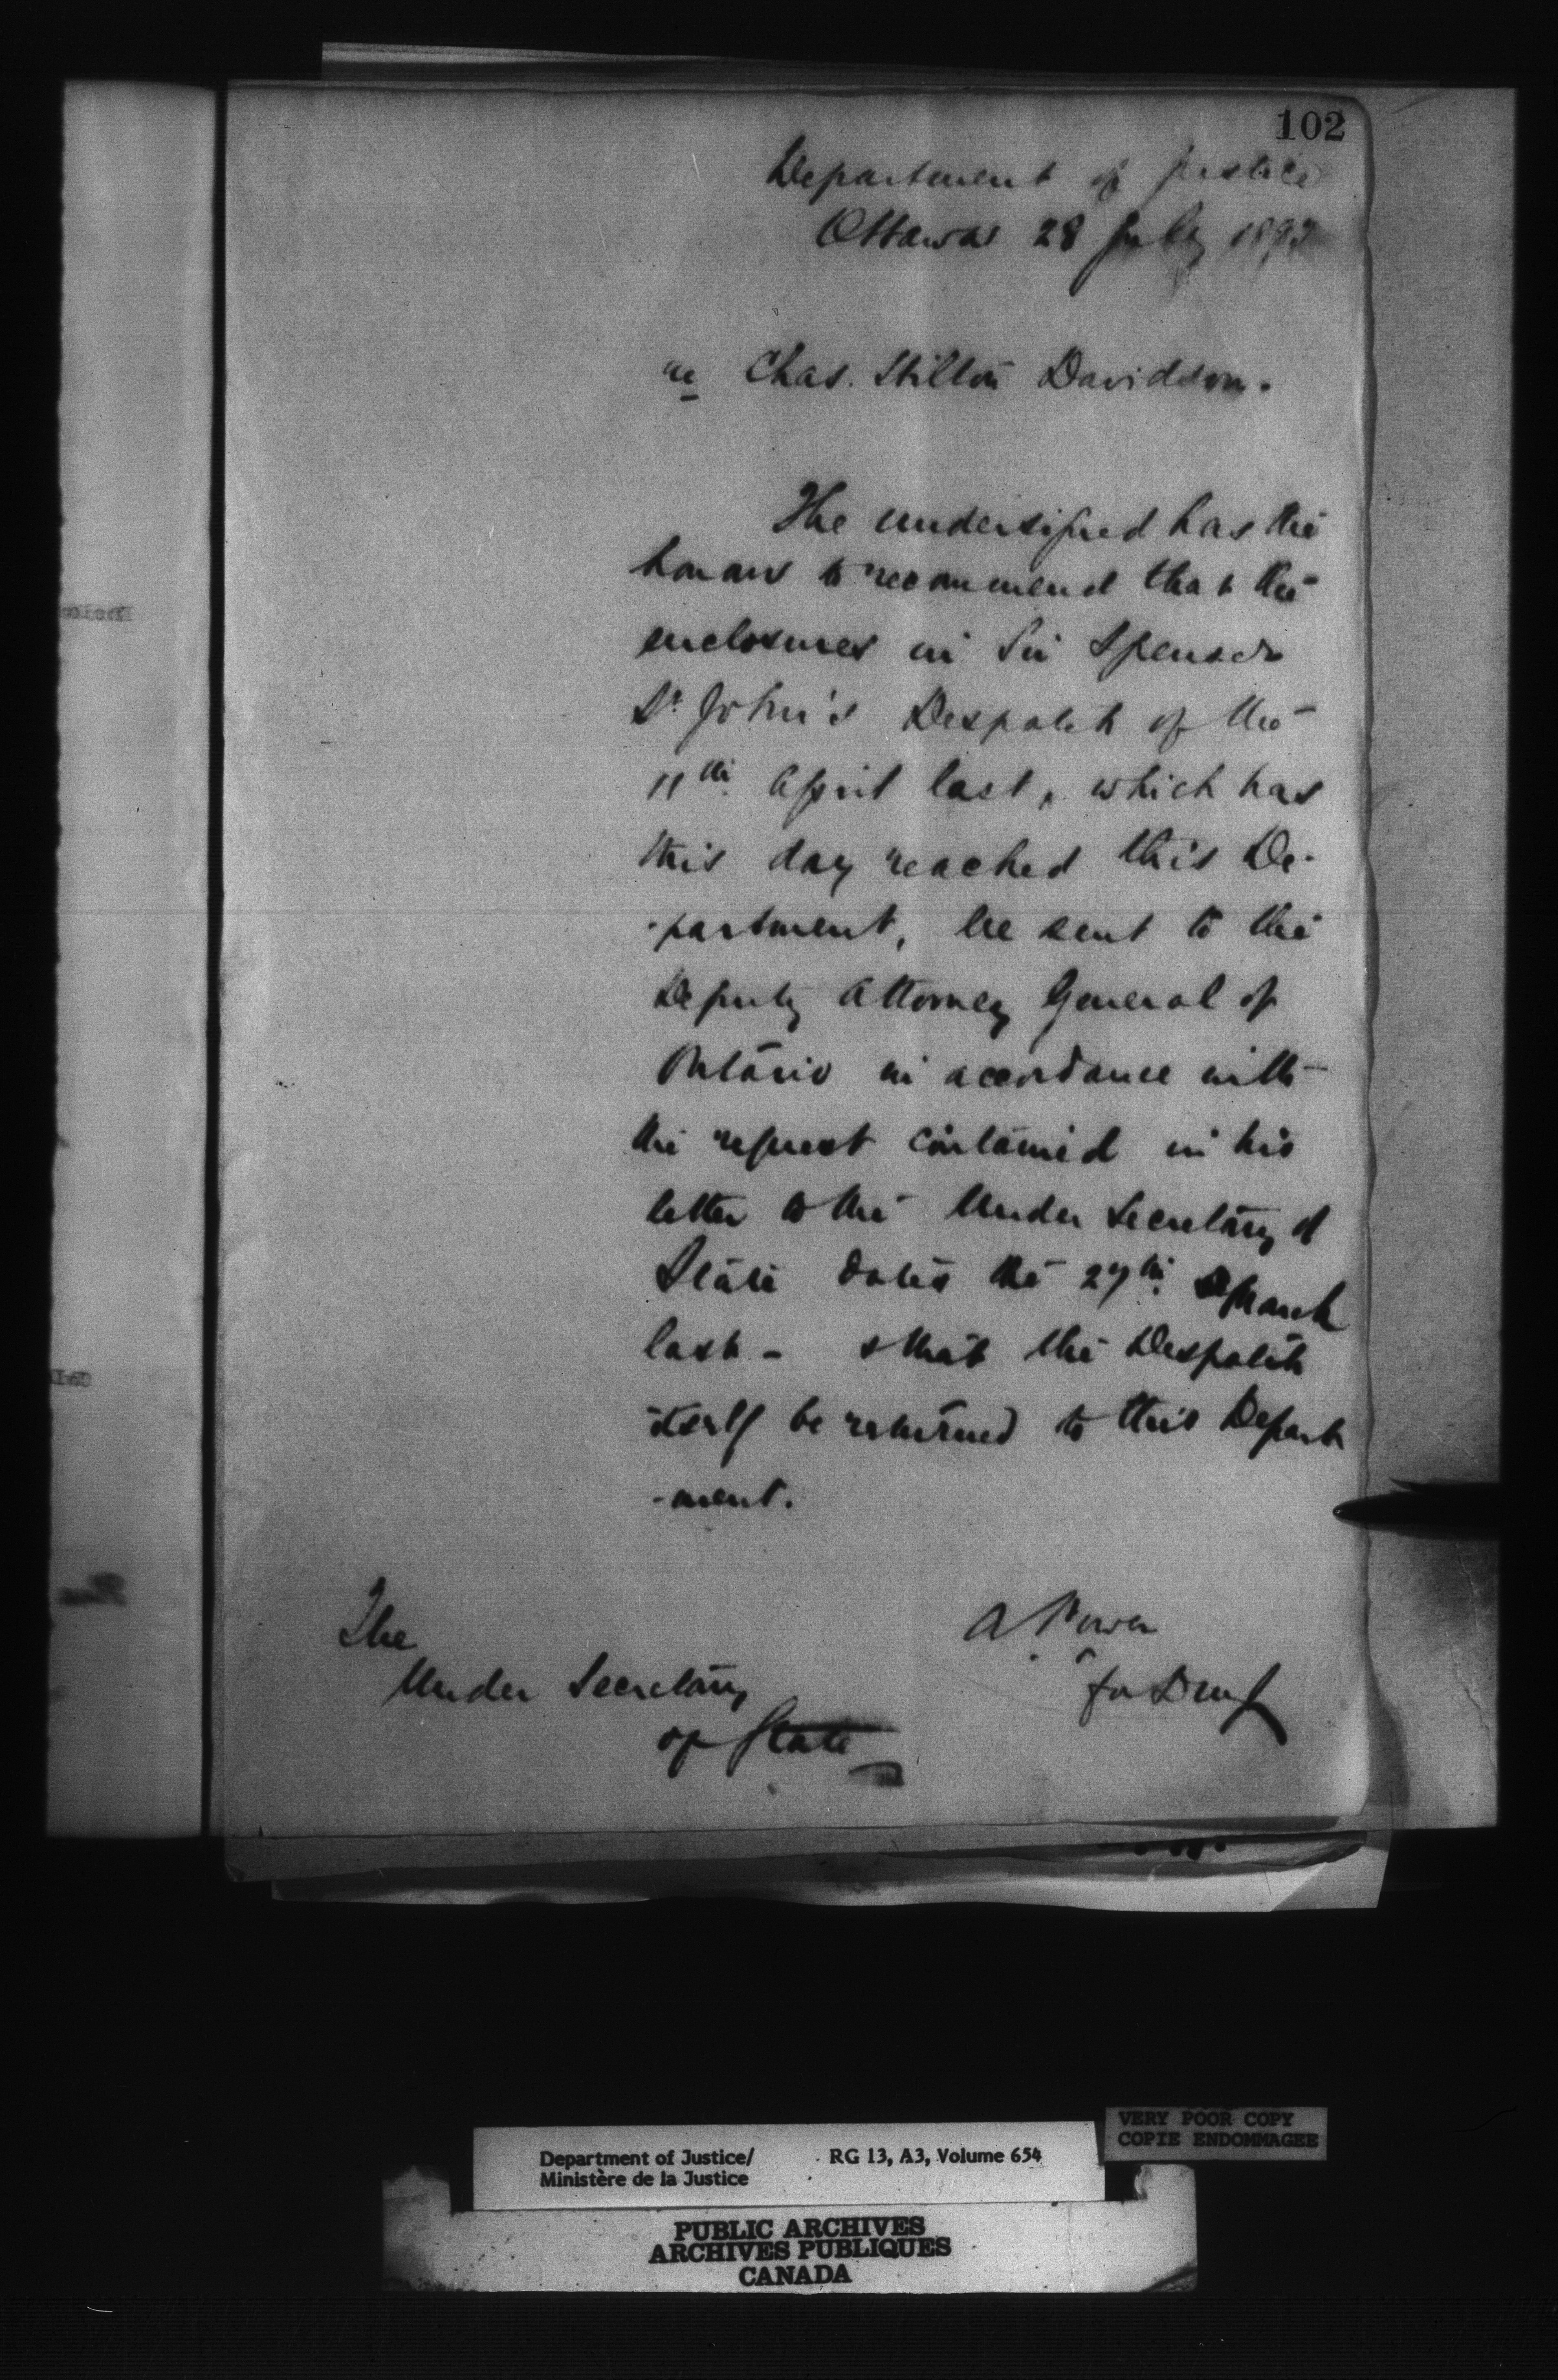 102
Department of Justice
Ottawa 28 July 1893
re Chas. Stilton Davidson.
The undersigned has the
honour to recommend that the
enclosures in Sir Spenser
St John's Despatch of the
11th April last, which has
this day reached this De-
-partment, be sent to the
Deputy Attorney General of
Ontario in accordance with
the request contained in his
letter to the Under Secretary of
State dated the 27th March
last - & that the Despatch
itself be returned to this Depart
-ment.
A Power
for DMJ
The
Under Secretary
of State
VERY POOR COPY
COPIE ENDOMMAGEE
Department of Justice/ RG 13, A3, Volume 654
Ministère de la Justice
PUBLIC ARCHIVES
ARCHIVES PUBLIQUES
CANADA